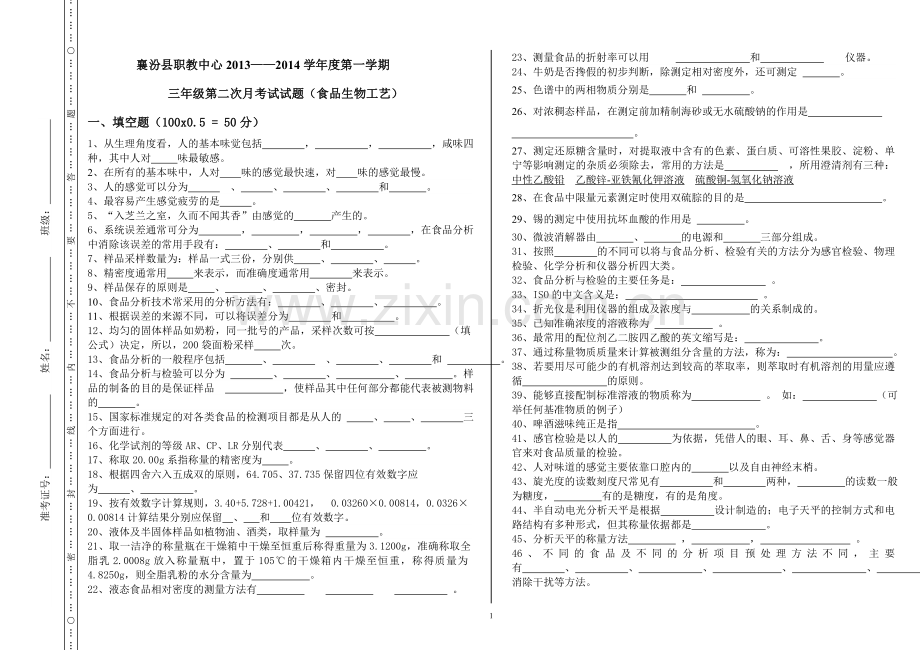 襄汾县职教中心 2013——2014 学年度第一学期
三年级第二次月考试试题（食品生物工艺）
一、填空题（100x0.5 = 50 分）
1、从生理角度看，人的基本味觉包括________，________，________，咸味四
种，其中人对____味最敏感。
2、在所有的基本味中，人对____味的感觉最快速，对____味的感觉最慢。
3、人的感觉可以分为______、______、______、______和______。
4、最容易产生感觉疲劳的是_____。
5、“入芝兰之室，久而不闻其香”由感觉的______产生的。
6、系统误差通常可分为______，________，________，________，在食品分析
中消除该误差的常用手段有：______、______和________。
7、样品采样数量为：样品一式三份，分别供_____、_____、______。
8、精密度通常用_____来表示，而准确度通常用______来表示。
9、样品保存的原则是______、______、______、密封。
10、食品分析技术常采用的分析方法有：______、______、______、______。
11、根据误差的来源不同，可以将误差分为______和________。
12、均匀的固体样品如奶粉，同一批号的产品，采样次数可按__________（填
公式）决定，所以，200 袋面粉采样____次。
13、食品分析的一般程序包括______、______、______、______和________。
14、食品分析与检验可以分为______、______、______、______。样
品的制备的目的是保证样品__________，使样品其中任何部分都能代表被测物料
的______。
15、国家标准规定的对各类食品的检测项目都是从人的_____、_____、______三
个方面进行。
16、化学试剂的等级 AR、CP、LR 分别代表______、______、______。
17、称取 20.00g 系指称量的精密度为_____。
18、根据四舍六入五成双的原则，64.705、37.735 保留四位有效数字应
为_____、______。
19、按有效数字计算规则，3.40+5.728+1.00421，0.03260×0.00814，0.0326×
0.00814 计算结果分别应保留__、___和___位有效数字。
20、液体及半固体样品如植物油、酒类，取样量为______。
21、取一洁净的称量瓶在干燥箱中干燥至恒重后称得重量为 3.1200g，准确称取全
脂乳 2.0008g 放入称量瓶中，置于 105℃的干燥箱内干燥至恒重，称得质量为
4.8250g，则全脂乳粉的水分含量为________。
22、液态食品相对密度的测量方法有______ ______ ______ 。
23、测量食品的折射率可以用______________和____________ 仪器。
24、牛奶是否掺假的初步判断，除测定相对密度外，还可测定______。
25、色谱中的两相物质分别是_____和______。
26、对浓稠态样品，在测定前加精制海砂或无水硫酸钠的作用是____________
____________。
27、测定还原糖含量时，对提取液中含有的色素、蛋白质、可溶性果胶、淀粉、单
宁等影响测定的杂质必须除去，常用的方法是________，所用澄清剂有三种：
中性乙酸铅 乙酸锌-亚铁氰化钾溶液 硫酸铜-氢氧化钠溶液
28、在食品中限量元素测定时使用双硫腙的目的是______________________。
29、锡的测定中使用抗坏血酸的作用是 ______。
30、微波消解器由_____、______的电源和_____三部分组成。
31、按照______的不同可以将与食品分析、检验有关的方法分为感官检验、物理
检验、化学分析和仪器分析四大类。
32、食品分析与检验的主要任务是：____________ 。
33、ISO 的中文含义是：__________ 。
34、折光仪是利用仪器的组成及浓度与________的关系制成的。
35、已知准确浓度的溶液称为 ________ 。
36、最常用的配位剂乙二胺四乙酸的英文缩写是：________。
37、通过称量物质质量来计算被测组分含量的方法，称为：____________。
38、若要用尽可能少的有机溶剂达到较高的萃取率，则萃取时有机溶剂的用量应遵
循____________的原则。
39、能够直接配制标准溶液的物质称为__________ 。 如：________（可
举任何基准物质的例子）
40、啤酒滋味纯正是指____________________。
41、感官检验是以人的________为依据，凭借人的眼、耳、鼻、舌、身等感觉器
官来对食品质量的检验。
42、人对味道的感觉主要依靠口腔内的_____以及自由神经末梢。
43、旋光度的读数刻度尺常见有________和______两种，________的读数一般
为糖度，______有的是糖度，有的是角度。
44、半自动电光分析天平是根据________设计制造的；电子天平的控制方式和电
路结构有多种形式，但其称量依据都是________。
45、分析天平的称量方法________ ，________，________ 。
46、不同的食品及不同的分析项目预处理方法不同，主要
有______、______、______、______、______、________，
消除干扰等方法。
班级：
姓名：
准考证号：
密 封 线 内 不 要 答 题
www.zixin.com.cn
1